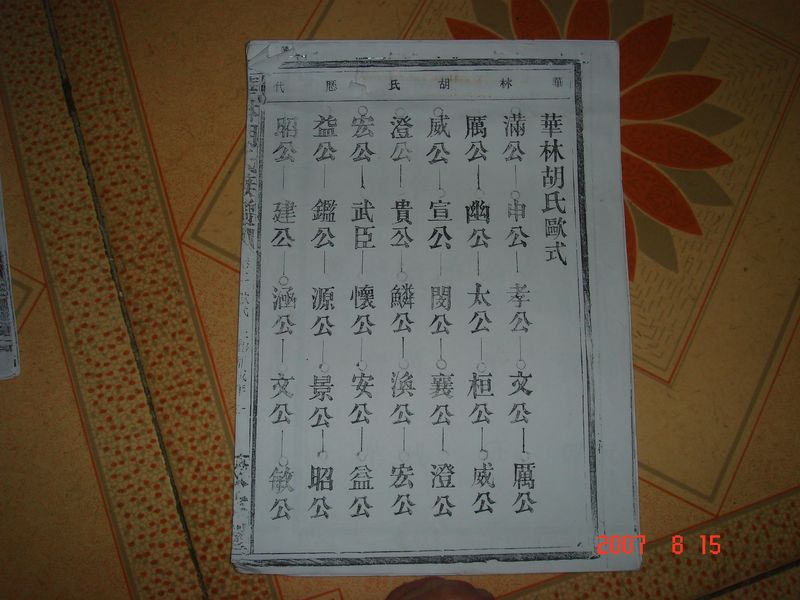 華林胡氏歷代
華林胡氏歐式
滿公 申公 孝公 文公 厲公
厲公 幽公 太公 桓公 威公
威公 宣公 閔公 襄公 澄公
澄公 貴公 鱗公 渙公 宏公
宏公 武臣 懷公 安公 益公
益公 鑑公 源公 景公 昭公
昭公 建公 涵公 文公 敏公
2007 8 15